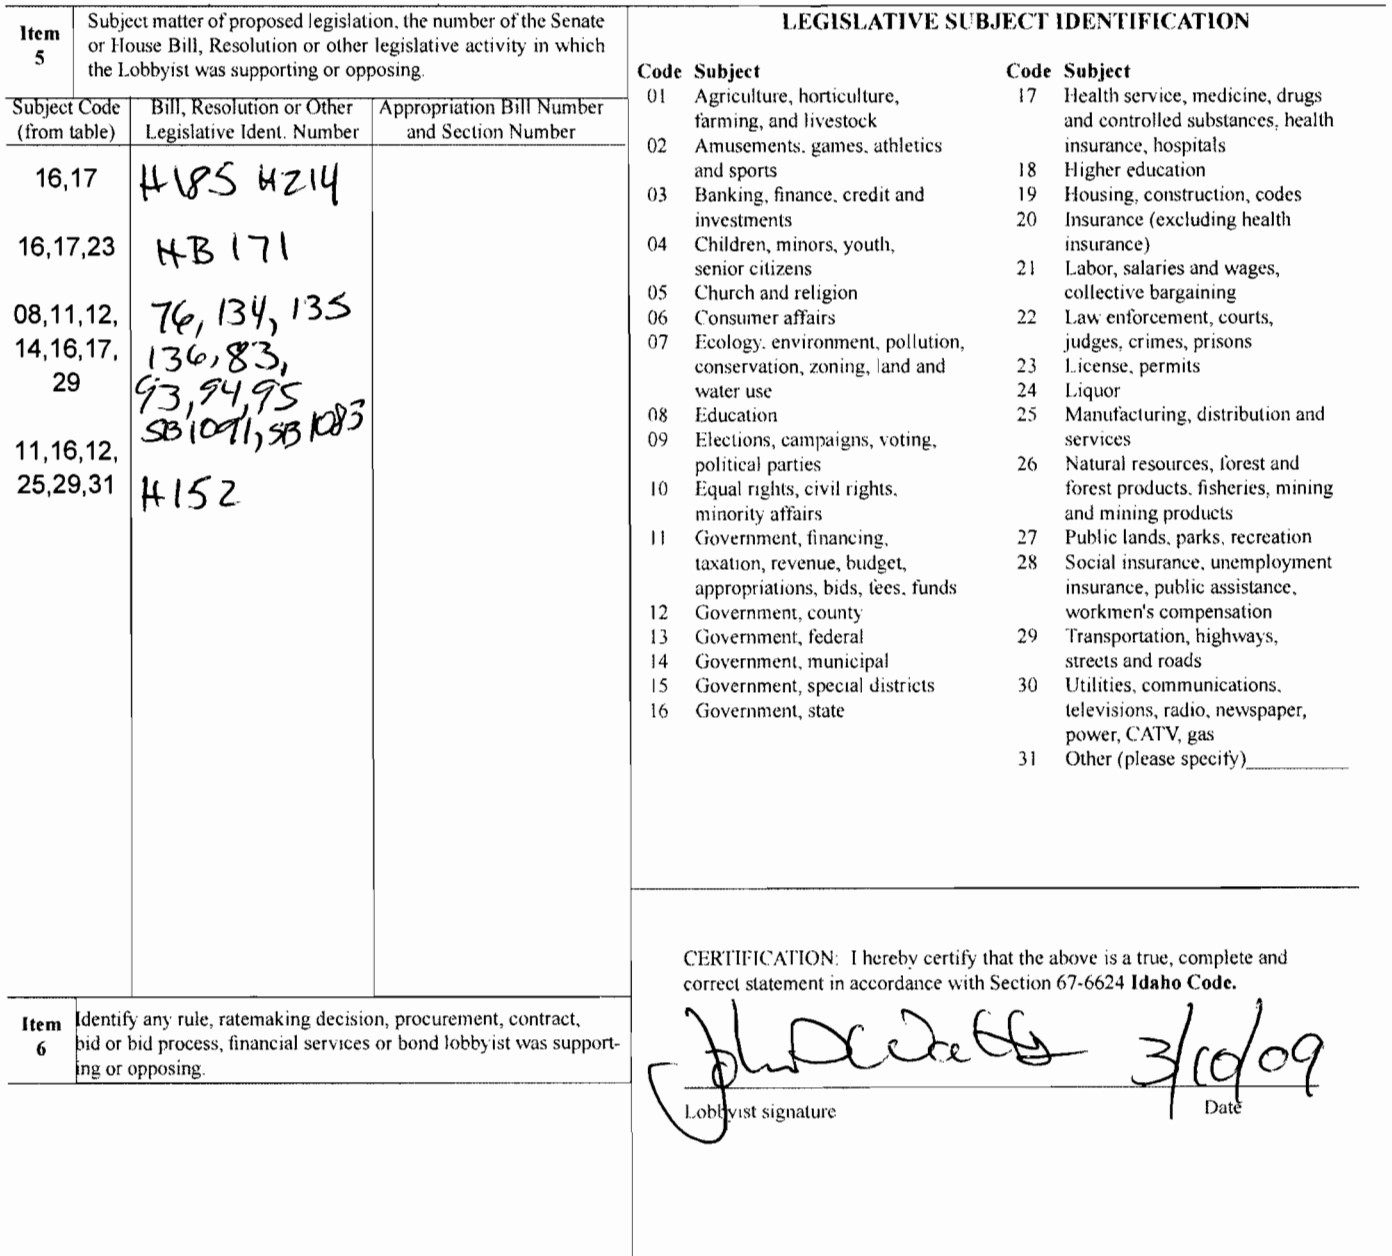 Item
5
Subject matter of proposed legislation, the number of the Senate
or House Bill, Resolution or other legislative activity in which
the Lobbyist was supporting or opposing.
Subject Code
(from table)
Bill, Resolution or Other
Legislative Ident. Number
Appropriation Bill Number
and Section Number
16,17
H185 H214
16,17,23
HB 171
08,11,12,
76, 134, 135
14,16,17,
136, 83,
29
93, 94, 95
SB1091, SB1083
11,16,12,
25,29,31
H152
Item
6
Identify any rule, ratemaking decision, procurement, contract,
bid or bid process, financial services or bond lobbyist was support-
ing or opposing.
LEGISLATIVE SUBJECT IDENTIFICATION
Code Subject
01 Agriculture, horticulture,
farming, and livestock
02 Amusements, games, athletics
and sports
03 Banking, finance, credit and
investments
04 Children, minors, youth,
senior citizens
05 Church and religion
06 Consumer affairs
07 Ecology, environment, pollution,
conservation, zoning, land and
water use
08 Education
09 Elections, campaigns, voting,
political parties
10 Equal rights, civil rights,
minority affairs
11 Government, financing,
taxation, revenue, budget,
appropriations, bids, fees, funds
12 Government, county
13 Government, federal
14 Government, municipal
15 Government, special districts
16 Government, state
Code Subject
17 Health service, medicine, drugs
and controlled substances, health
insurance, hospitals
18 Higher education
19 Housing, construction, codes
20 Insurance (excluding health
insurance)
21 Labor, salaries and wages,
collective bargaining
22 Law enforcement, courts,
judges, crimes, prisons
23 License, permits
24 Liquor
25 Manufacturing, distribution and
services
26 Natural resources, forest and
forest products, fisheries, mining
and mining products
27 Public lands, parks, recreation
28 Social insurance, unemployment
insurance, public assistance,
workmen's compensation
29 Transportation, highways,
streets and roads
30 Utilities, communications,
televisions, radio, newspaper,
power, CATV, gas
31 Other (please specify)__________
CERTIFICATION: I hereby certify that the above is a true, complete and
correct statement in accordance with Section 67-6624 Idaho Code.
John D Watts 3/10/09
Lobbyist signature
Date